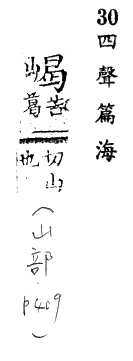 30 四聲篇海
嵑苦葛切山也
(山部 p409)